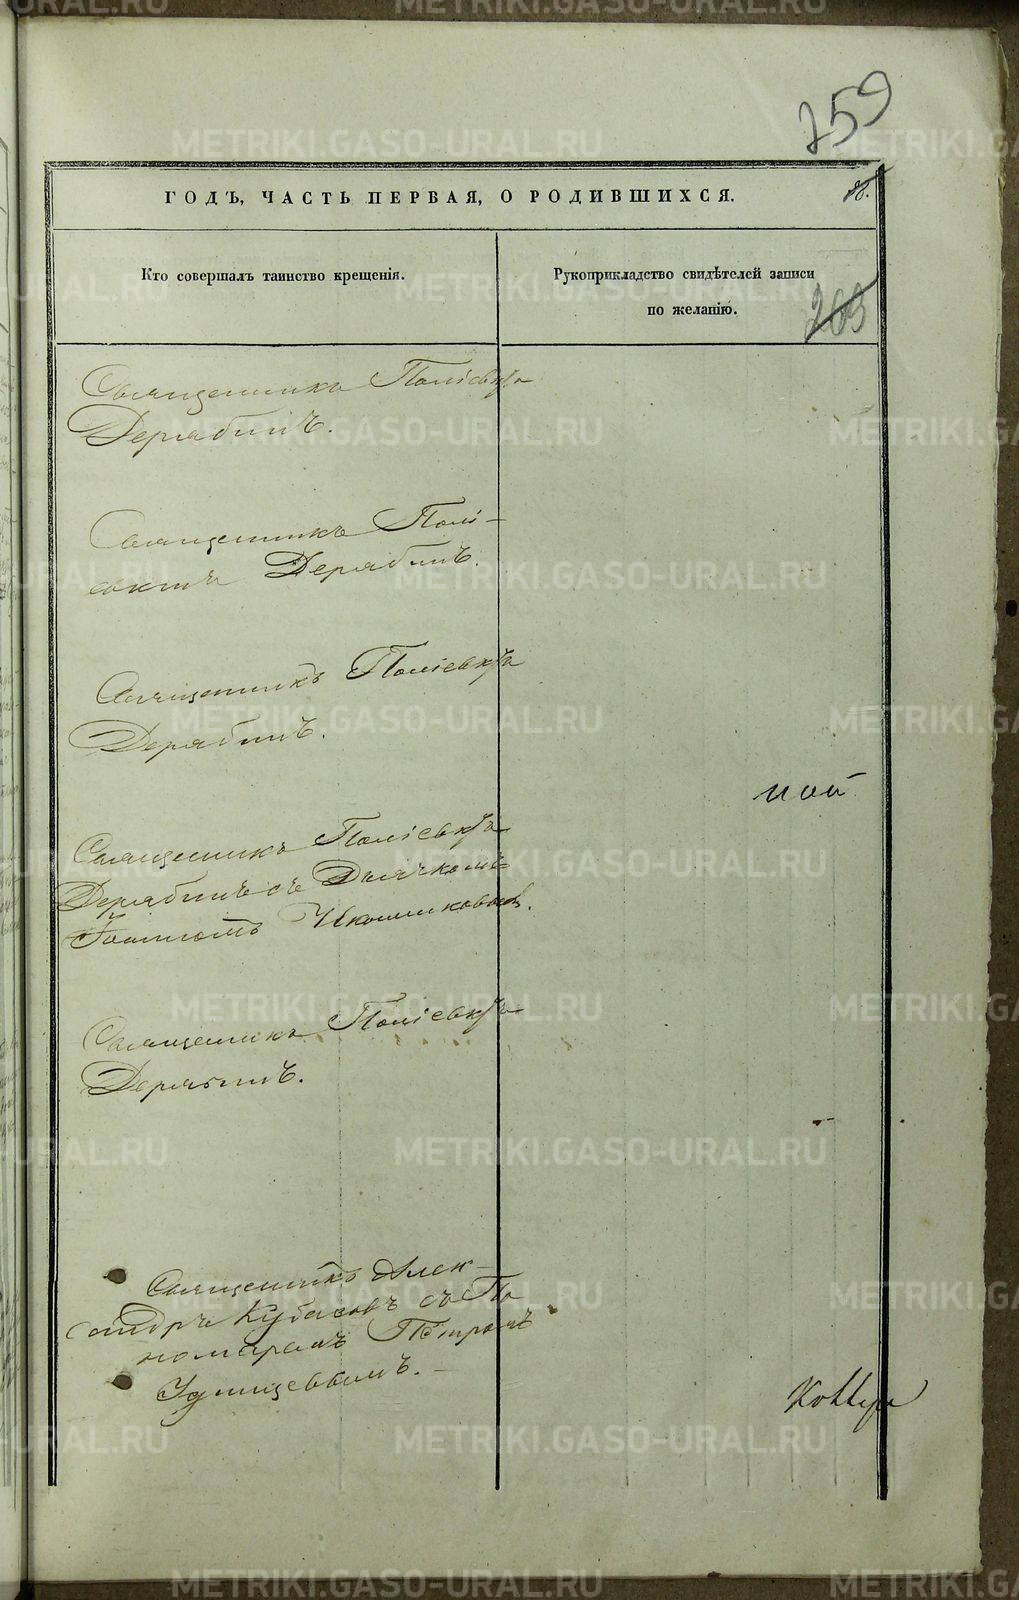 259
ГОДЪ, ЧАСТЬ ПЕРВАЯ, О РОДИВШИХСЯ.
Кто совершалъ таинство крещенія.
Рукоприкладство свидѣтелей записи
по желанію.
203
Священникъ Поліевктъ
Дерябинъ.
Священникъ Полі-
евктъ Дерябинъ.
Священникъ Поліевктъ
Дерябинъ.
ной
Священникъ Поліевктъ
Дерябинъ съ Дьячкомъ
Іоанномъ Иконниковымъ.
Священникъ Поліевктъ
Дерябинъ.
Священникъ Алек-
сандръ Кубасовъ съ По
номаремъ Петромъ
Удинцевымъ.
METRIKI.GASO-URAL.RU